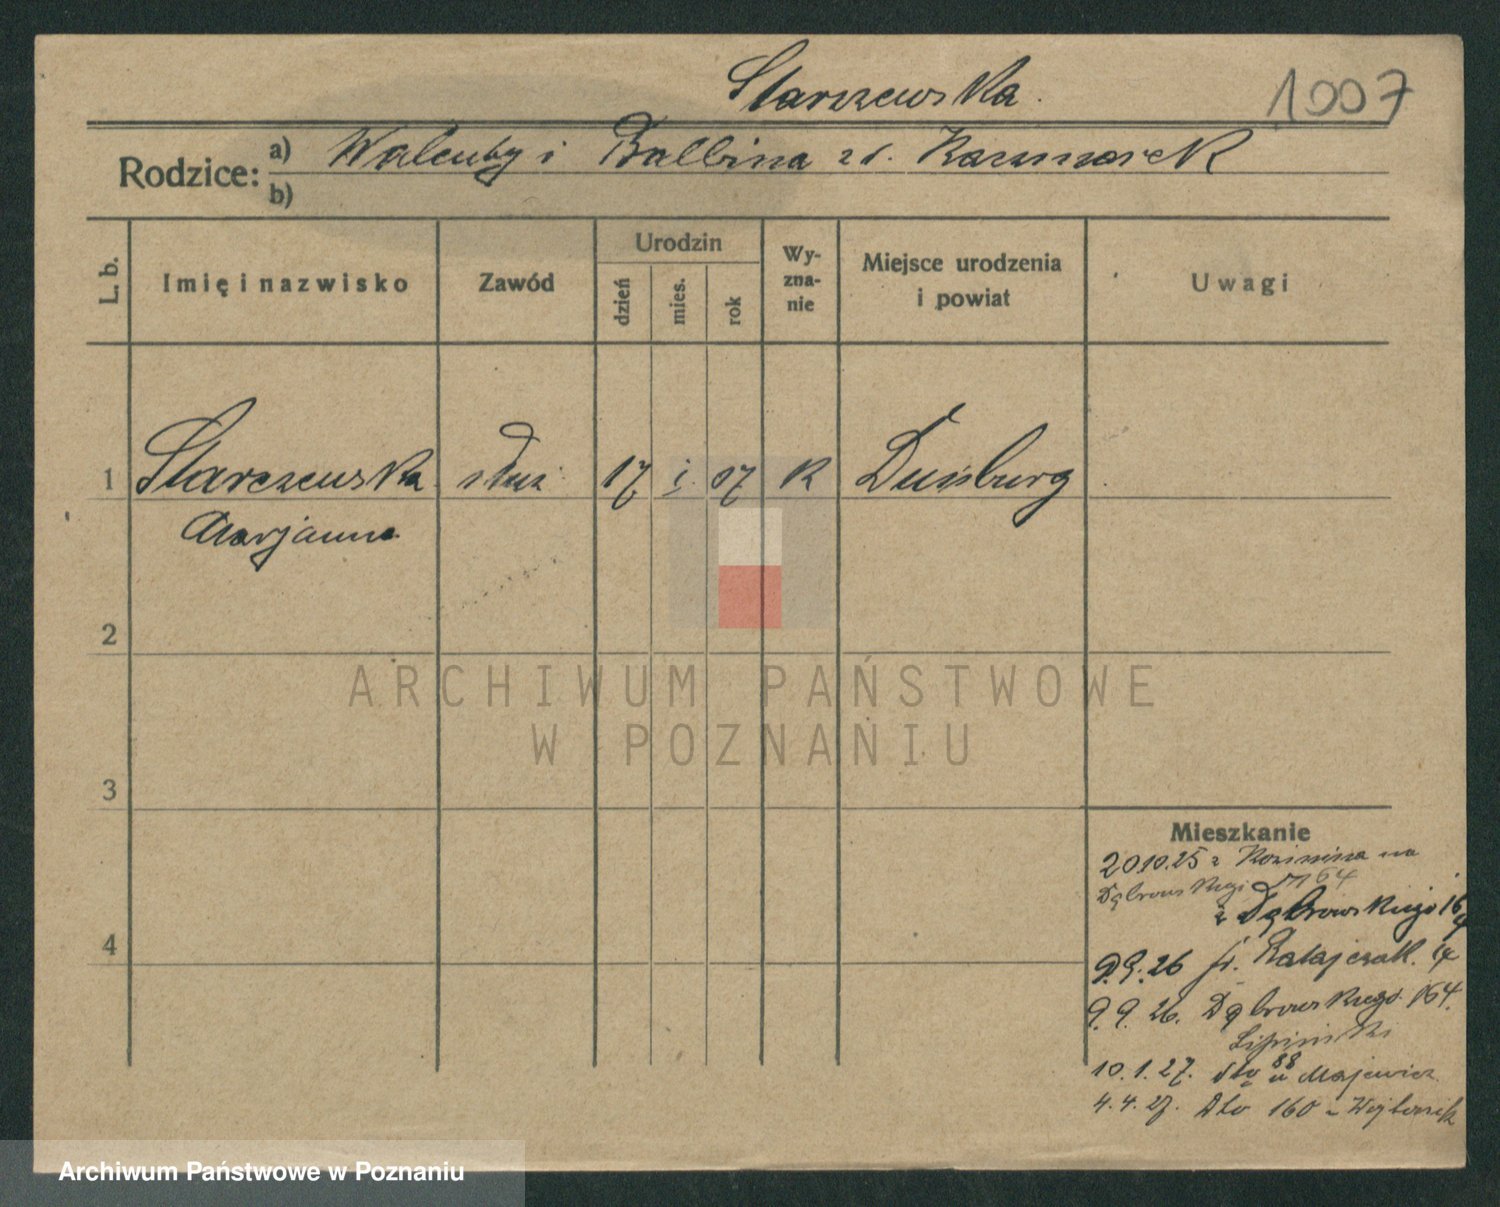 Starczewska.
1007
Rodzice: a) Walenty i Balbina z d. Kaczmarek
b)
L. b.
Imię i nazwisko
Zawód
Urodzin
dzień
mies.
rok
Wy-
zna-
nie
Miejsce urodzenia
i powiat
Uwagi
1 Starczewska służ. 17 1. 07 K Duisburg
Marjanna
2
3
4
Mieszkanie
20.10.25 z Kozimina na
Dąbrowskiego 164
z Dąbrowskiego 164
9.9.26 Ratajczak. 14
9.9.26. Dąbrowskiego 164.
Lipiński
10.1.27. dto 88 u Majewicz
4.4.27. Dto 160
ARCHIWUM PAŃSTWOWE
W POZNANIU
Archiwum Państwowe w Poznaniu